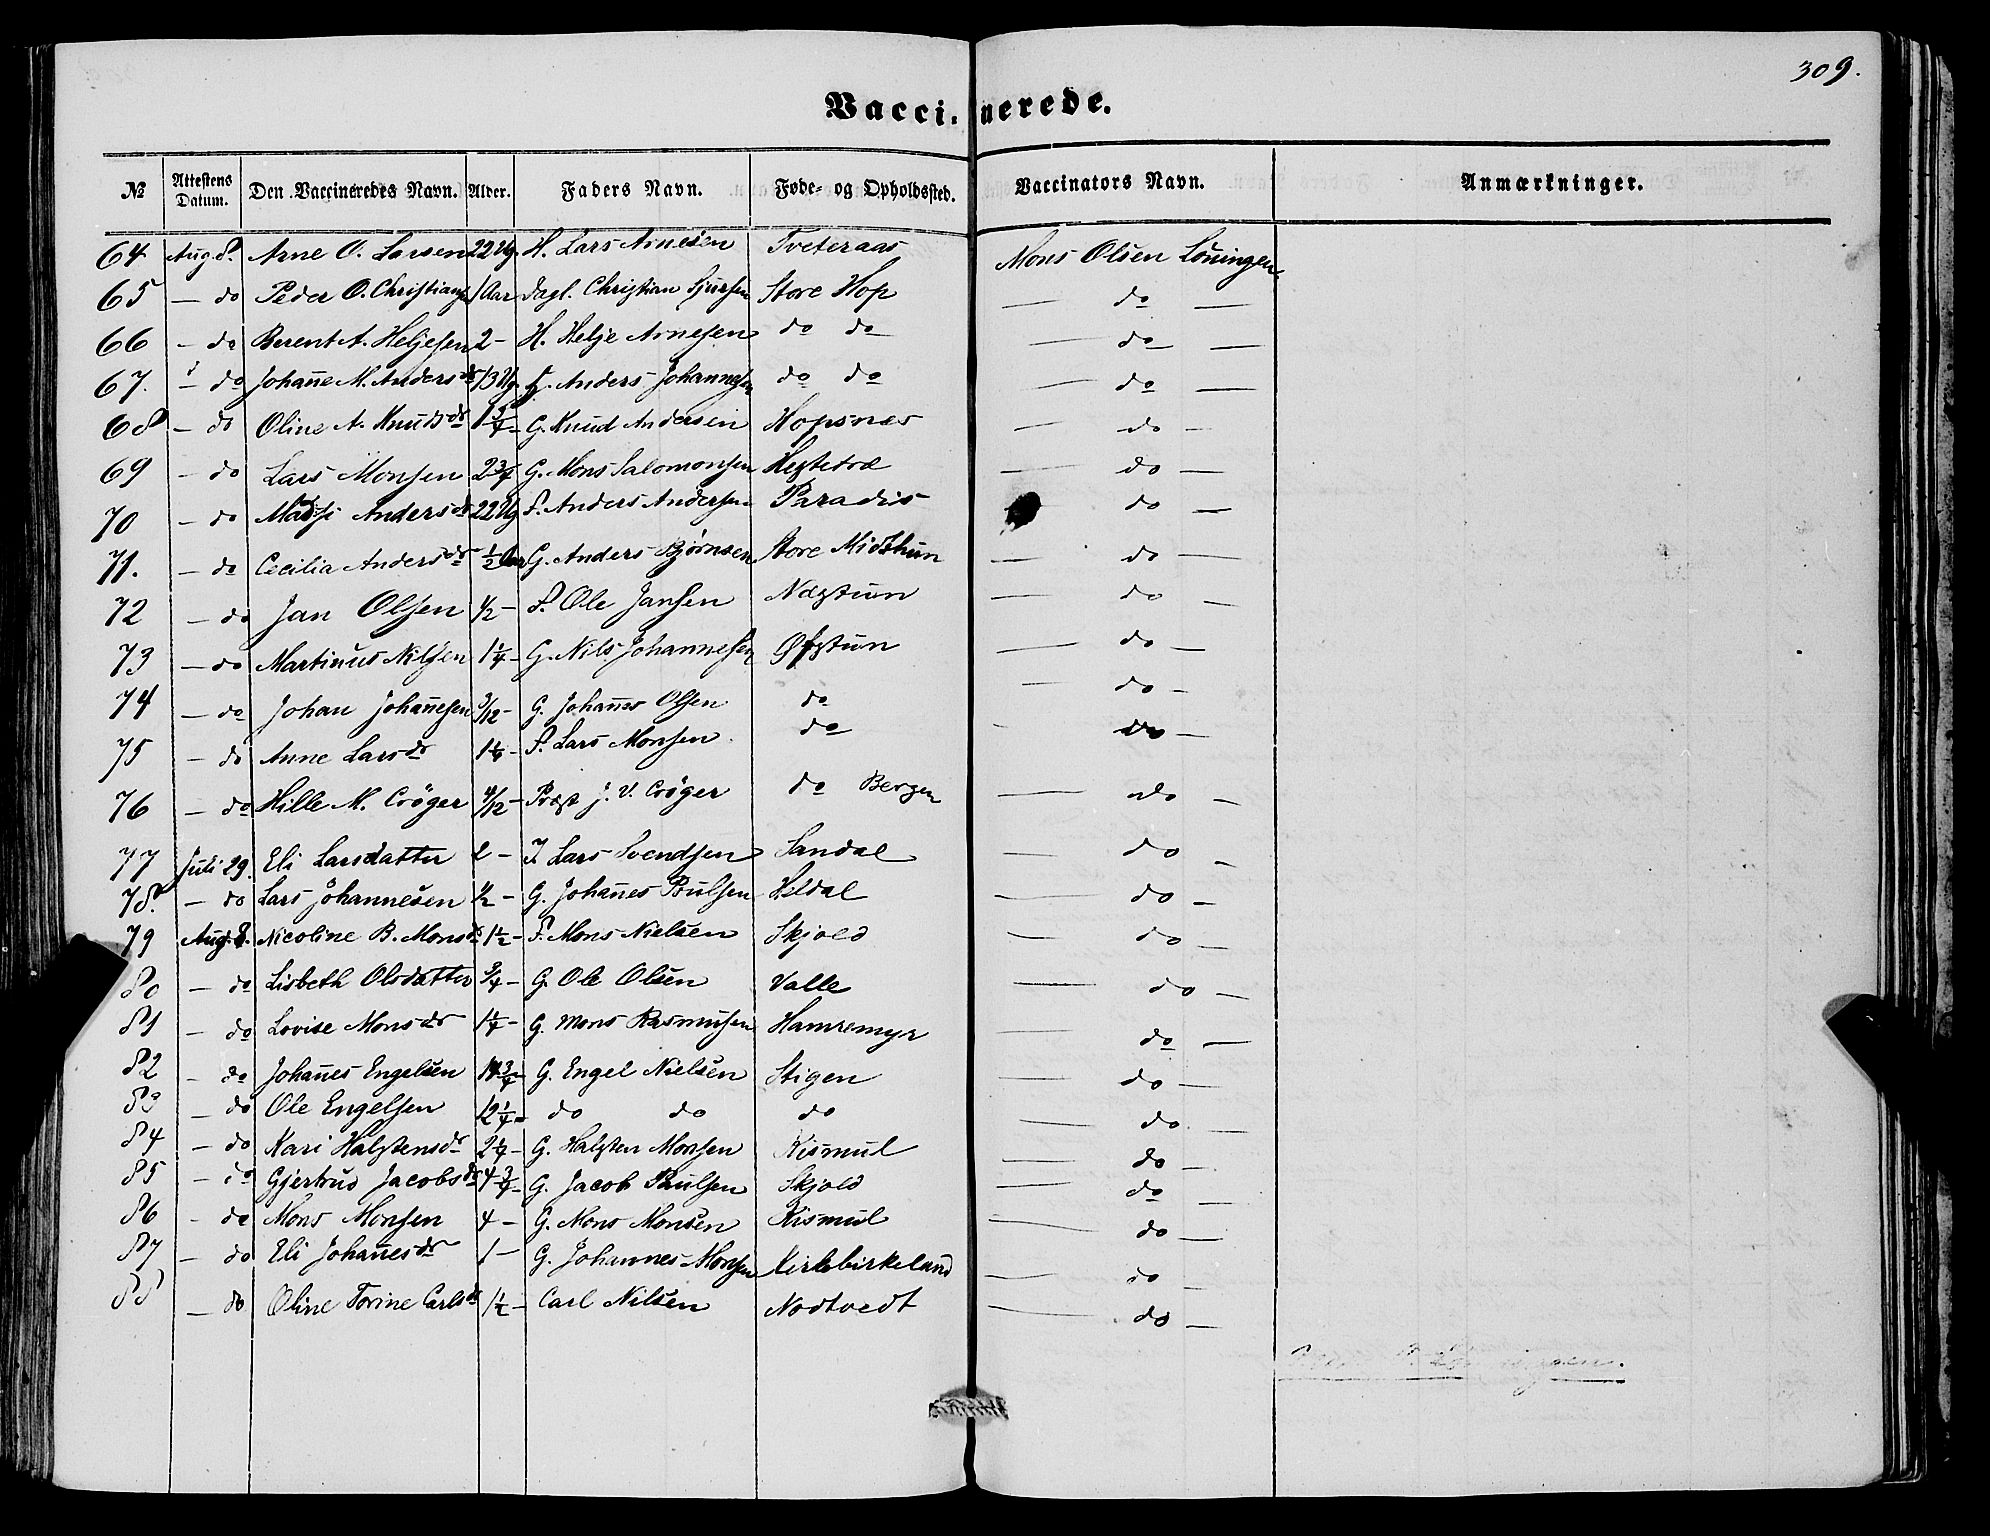 309.
Vaccinerede.
№ | Attestens Datum. | Den Vaccineredes Navn. | Alder. | Faders Navn. | Føde- og Opholdssted. | Vaccinators Navn. | Anmærkninger.
64 | Aug. 8. | Arne O. Larsen | 22 Ug. | H. Lars Arnesen | Tveteraas | Mons Olsen Löningen
65 | — do | Peder O. Christians | 1 Aar | Dagl. Christian Sjursen | Store Hop | — do —
66 | — do | Berent A. Heljesen | 2 - | H. Helje Arnesen | do do | — do —
67. | — do | Johañe M. Andersdr | 13 Ug. | Anders Johannesen | do do | — do —
68 | — do | Oline A. Knudsdr | | G. Knud Andersen | Hopsnes | — do —
69 | — do | Lars Monsen | 2 3/4 | G. Mons Salomonsen | | — do —
70 | — do | Madsi Andersdr | 22 Ug | P. Anders Andersen | Paradis | do —
71. | — do | Cecilia Andersdr | 1/2 Aar | G. Anders Bjørnsen | Store Midthun | — do —
72 | — do | Jan Olsen | 1/2 - | P. Ole Jansen | Nestun | — do —
73 | — do | Martinus Nilsen | 1 1/4 - | G. Nils Johannesen | Øfstun | — do —
74 | — do | Johan Johañesen | 3/12 - | G. Johañes Olsen | do | — do —
75 | — do | Anne Larsdr | 1 1/4 - | P. Lars Monsen | do | - do —
76 | — do | Hille M. Cröger | 4/12 - | Præst J. V. Cröger | do Bergen | — do —
77 | Juli 29. | Eli Larsdatter | 2 - | I. Lars Svendsen | Sandal | — do —
78. | — do | Lars Johannesen | 1/2 - | G. Johañes Pulsen | Heldal | — do —
79 | Aug. 8. | Nicoline B. Monsdr | 1 1/2 - | P. Mons Nielsen | Skjold | — do —
80 | — do | Lisbeth Olsdatter | 3/4 - | G. Ole Olsen | Valle | — do —
81 | — do | Lovise Monsdr | 1 1/4 - | G. Mons Rasmusen | Hamremyr | — do —
82 | — do | Johañes Engelsen | 14 3/4 | G. Engel Nielsen | Stigen | — do —
83 | — do | Ole Engelsen | 12 1/4 - | do do | do | — do —
84 | — do | Kari Halstensdr | 2 1/4 - | G. Halsten Monsen | Kismul | — do —
85 | — do | Gjertrud Jacobsdr | 4 3/4 - | G. Jacob Paulsen | Skjold | — do —
86 | - do | Mons Monsen | 4 - | G. Mons Monsen | Kismul | — do —
87 | — do | Eli Johañesdr | 1 - | G. Johannes Monsen | Kirkebirkeland | — do —
88 | — do | Oline Torine Carlsdr | 1 1/2 - | Carl Nilsen | Nodtvedt | — do —